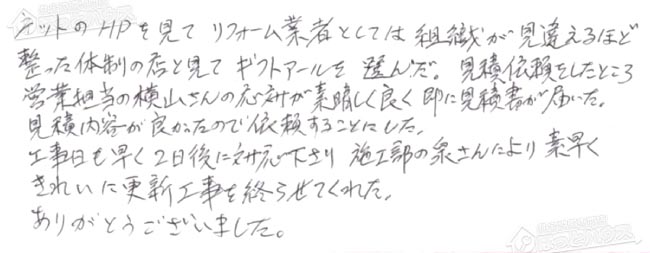 ネットのHPを見て リフォーム業者としては 組織が見違えるほど
整った体制の店と見て ギフトアールを 選んだ。 見積依頼をしたところ
営業担当の横山さんの応対が素晴しく良く 即に見積書が届いた。
見積内容が良かったので依頼することにした。
工事日も早く2日後に対応下さり 施工部の泉さんにより 素早く
きれいに更新工事を終らせてくれた。
ありがとうございました。